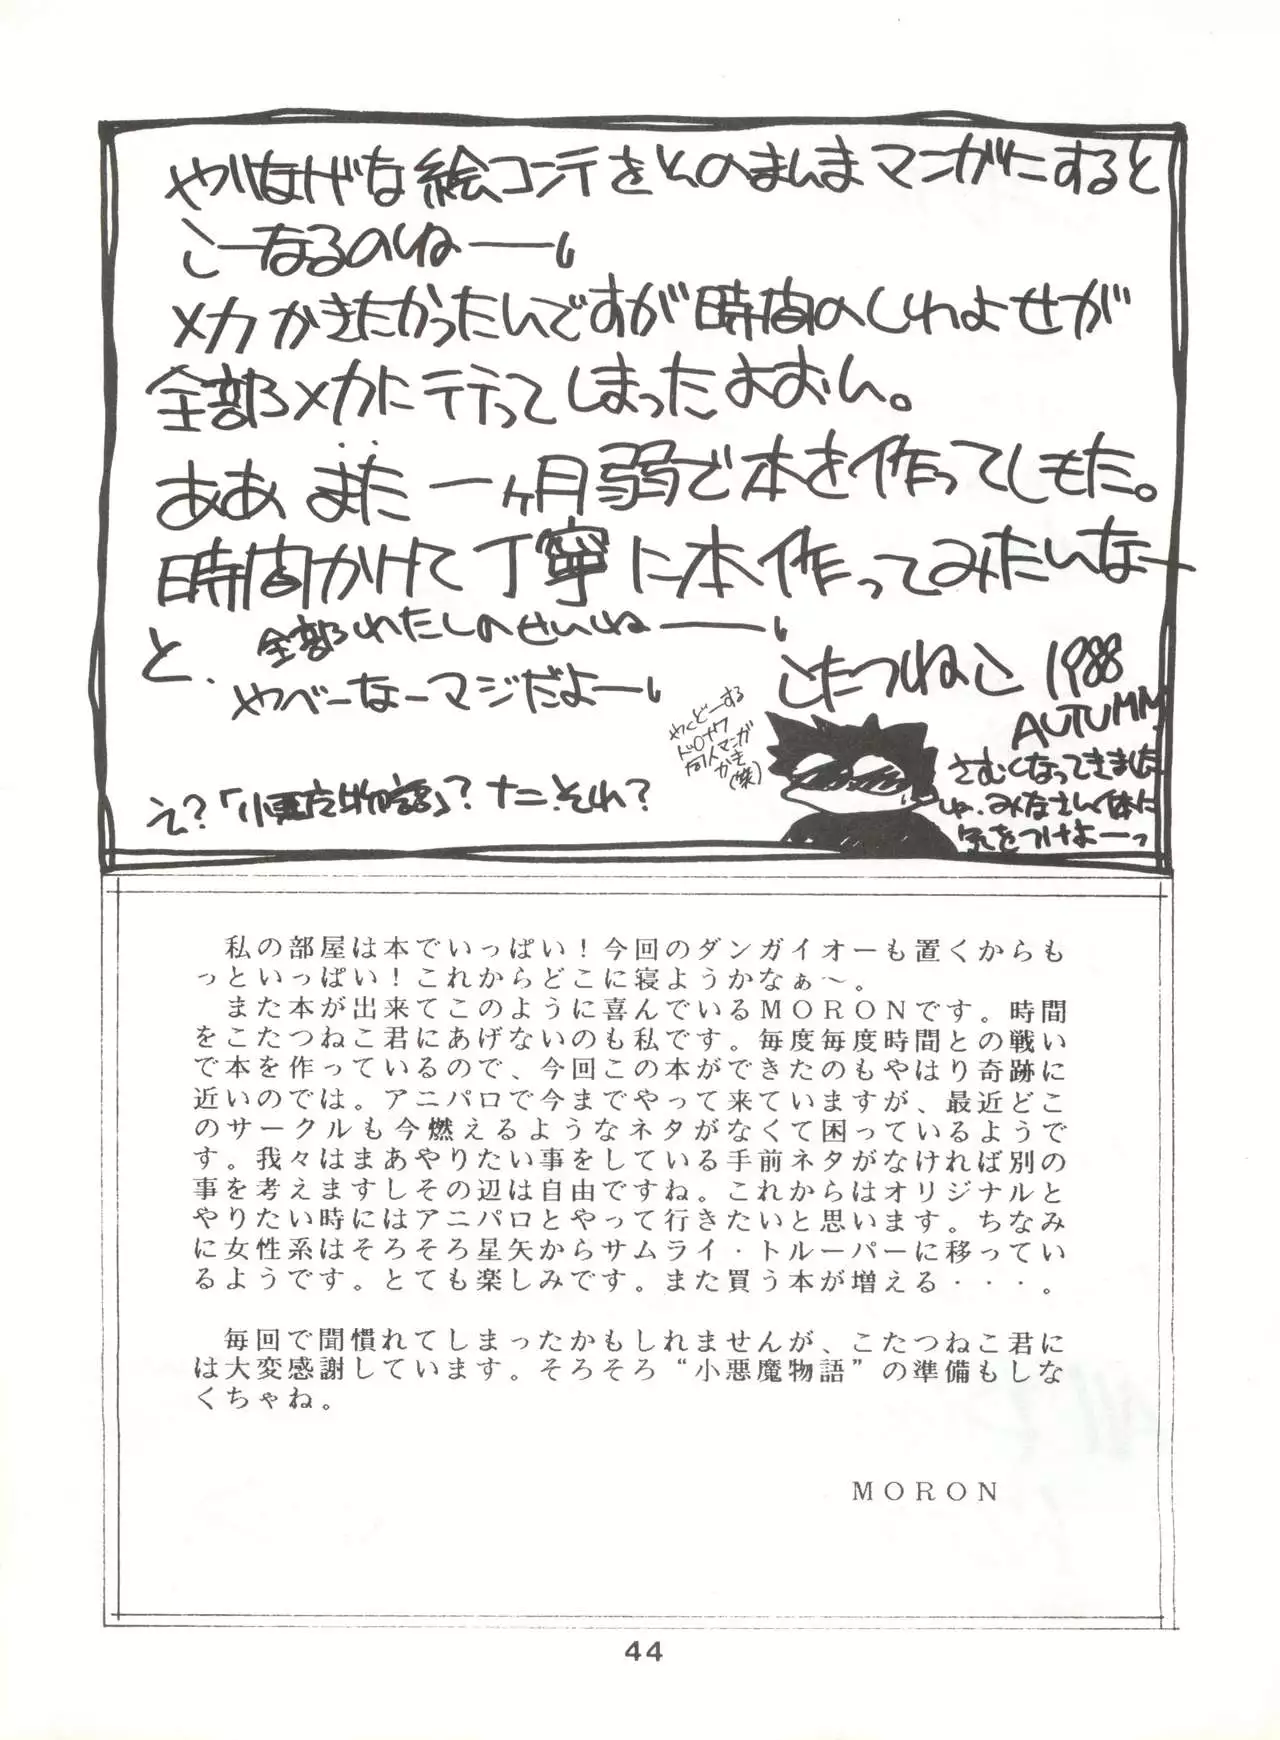 やりなげな絵コンテをそのまんまマンガにすると
こーなるのしねーー
メカかきたかったんですが時間のしわよせが
全部メカに行ってしまったよおん。
ああ また 一ヶ月弱で本を作ってしもた。
時間かけて丁寧に本作ってみたいなー
と、
全部わたしのせいしねーー
やべーなーマジだよー
こたつねこ 1988
AUTUMN
やくどーする
ドロナワ
同人マンガ
かき
(笑)
さむくなってきました
しゅ、みなさん体に
気をつけよーっ
え?「小悪魔物語」? ナニ、それ?
私の部屋は本でいっぱい!今回のダンガイオーも置くからも
っといっぱい!これからどこに寝ようかなぁ~。
また本が出来てこのように喜んでいるMORONです。時間
をこたつねこ君にあげないのも私です。毎度毎度時間との戦い
で本を作っているので、今回この本ができたのもやはり奇跡に
近いのでは。アニパロで今までやって来ていますが、最近どこ
のサークルも今燃えるようなネタがなくて困っているようで
す。我々はまあやりたい事をしている手前ネタがなければ別の
事を考えますしその辺は自由ですね。これからはオリジナルと
やりたい時にはアニパロとやって行きたいと思います。ちなみ
に女性系はそろそろ星矢からサムライ・トルーパーに移ってい
るようです。とても楽しみです。また買う本が増える・・・。
毎回で聞慣れてしまったかもしれませんが、こたつねこ君に
は大変感謝しています。そろそろ“小悪魔物語”の準備もしな
くちゃね。
MORON
44